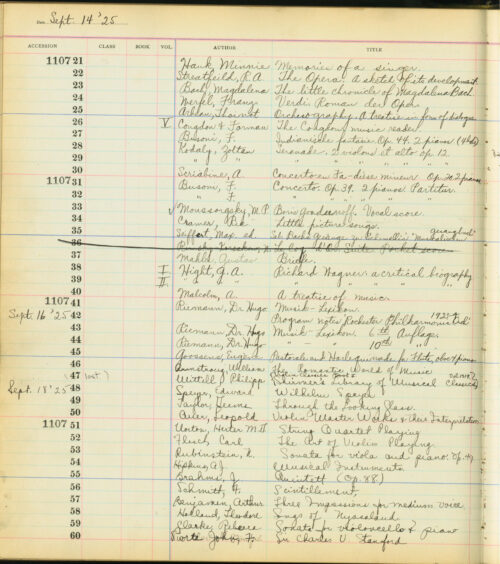 Date Sept. 14 '25
ACCESSION CLASS BOOK VOL. AUTHOR TITLE
110721 Hauk, Minnie Memories of a singer.
22 Streatfeild, R.A. The Opera. A sketch of its development
23 Bach, Magdalena The little chronicle of Magdalena Bach
24 Werfel, Franz Verdi. Roman der Oper
25 Arbeau, Thoinot Orchesography. A treatise in form of dialogue
26 V Congdon & Farman The Congdon music reader
27 Busoni, F. Indianische fantasie Op. 44. 2 pianos (4 hds)
28 Kodaly, Zoltan Serenade. 2 violons et alto op. 12
29 " " " " "
30 Scriabine, A. Concerto en Fa-dièse mineur Op. 20 2 pianos
110731 Busoni, F. Concerto. Op. 39. 2 pianos Partitur
32 " F.
33 Moussorgsky, M.P. Boris Godounoff. Vocal score.
34 Cramer, Little picture songs.
35 Seiffert, Max ed.
36 Le Coq d'Or Suite Pocket score
37 Mahler, Gustav Briefe.
38 I Hight, G.A. Richard Wagner a critical biography
39 II " " " " " "
40 Malcolm, A. A treatise of musick
110741 Riemann, Dr. Hugo Musik-Lexikon.
Sept. 16 '25 42 Program notes Rochester Philharmonic
43 Riemann, Dr. Hugo Musik-Lexikon. 6th Auflage.
44 Riemann, Dr. Hugo " - " 10th "
45 Goossens, Eugene Pastorale and Harlequinade for flute, oboe & piano
46 Armstrong, William The Romantic World of Music
47 Wittell, Philipp Schirmer's Library of Musical Classics
Sept. 18 '25 48 Speyer, Edward Wilhelm Speyer
49 Taylor, Deems Through the Looking Glass.
50 Auer, Leopold Violin Master Works & their Interpretation
110751 Norton, Herter M.D. String Quartet Playing
52 Flesch, Carl The Art of Violin Playing.
53 Rubinstein, A. Sonata for viola and piano. Op. 49
54 Hipkins, A.J. Musical Instruments.
55 Brahms, J. Quintett (Op. 88)
56 Schmitt, F. Scintillement,
57 Benjamin, Arthur Three Impressions for medium voice
58 Holland, Theodore Songs of Nyasaland.
59 Clarke, Rebecca Sonata for violoncello & piano
60 Porte, John F. Sir Charles V. Stanford